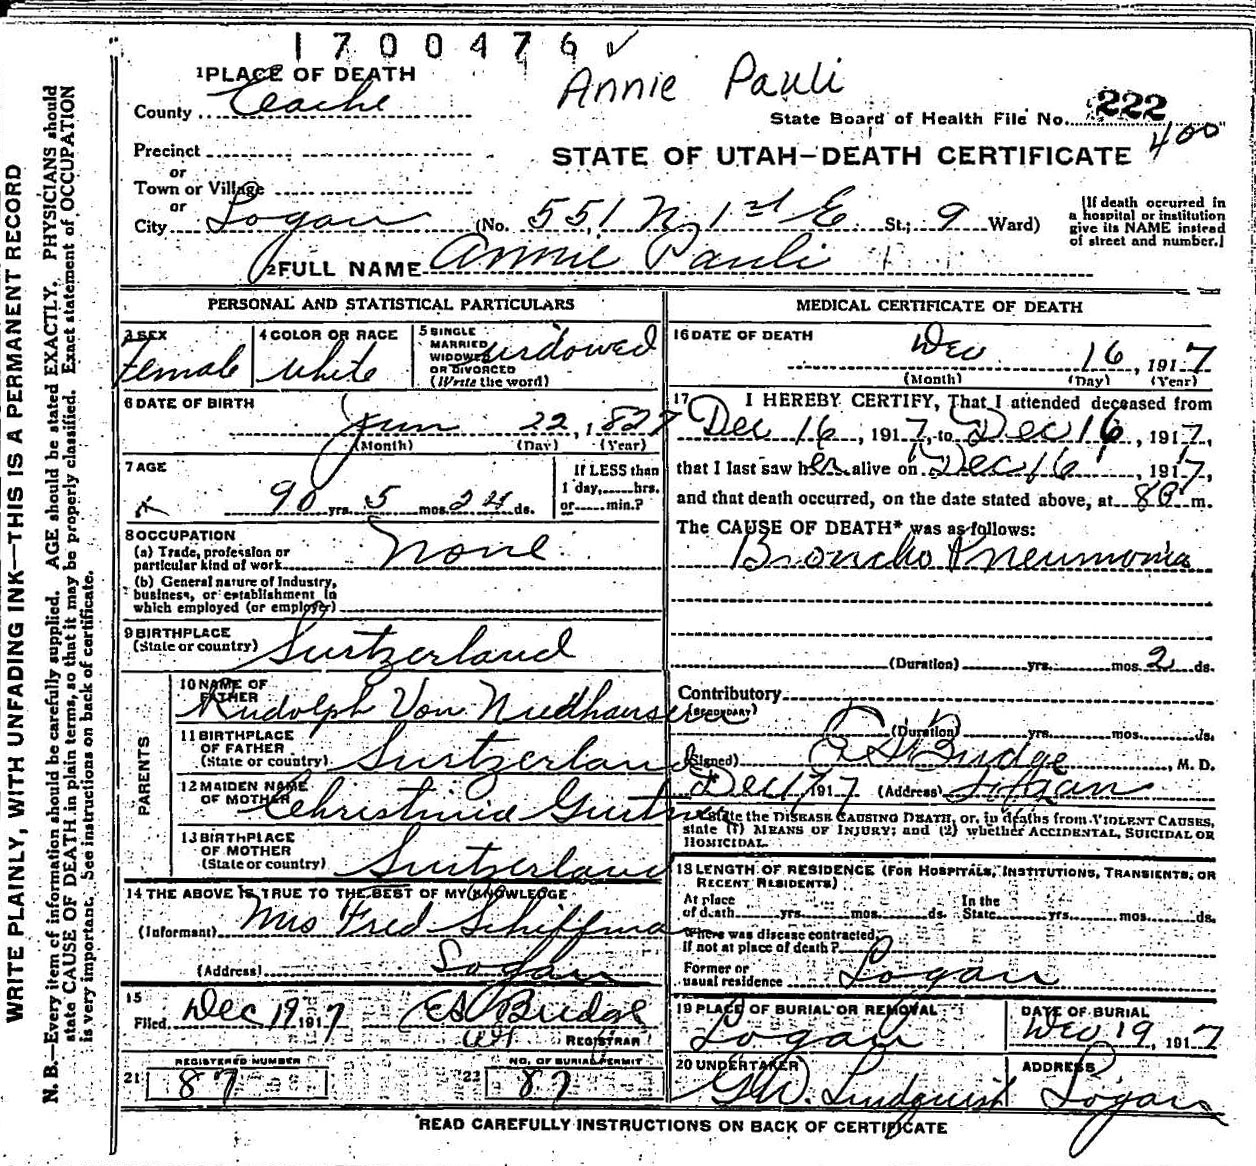 1700476 ✓
Annie Pauli
1 PLACE OF DEATH
County Cache
State Board of Health File No. 222
400
Precinct
or
Town or Village
or
STATE OF UTAH—DEATH CERTIFICATE
City Logan (No. 551 N 1st E St.; 9 Ward)
[If death occurred in
a hospital or institution
give its NAME instead
of street and number.]
2 FULL NAME Annie Pauli
PERSONAL AND STATISTICAL PARTICULARS
3 SEX
Female
4 COLOR OR RACE
White
5 SINGLE
MARRIED
WIDOWED
OR DIVORCED
(Write the word)
widowed
6 DATE OF BIRTH
Jun 22, 1827
(Month) (Day) (Year)
7 AGE
90 yrs. 5 mos. 24 ds.
If LESS than
1 day,......hrs.
or......min.?
8 OCCUPATION
(a) Trade, profession or
particular kind of work
None
(b) General nature of Industry,
business, or establishment in
which employed (or employer)
9 BIRTHPLACE
(State or country)
Surtzerland
PARENTS
10 NAME OF
FATHER
Rudolph Von Niedhausern
11 BIRTHPLACE
OF FATHER
(State or country)
Surtzerland
12 MAIDEN NAME
OF MOTHER
Christinia
13 BIRTHPLACE
OF MOTHER
(State or country)
Surtzerland
14 THE ABOVE IS TRUE TO THE BEST OF MY KNOWLEDGE
(Informant) Mrs Fred Schiffman
(Address) Logan
15
Filed Dec 19 1917 Budge
REGISTRAR
REGISTERED NUMBER
21 87
NO. OF BURIAL PERMIT
22 87
MEDICAL CERTIFICATE OF DEATH
16 DATE OF DEATH
Dec 16, 1917
(Month) (Day) (Year)
17 I HEREBY CERTIFY, That I attended deceased from
Dec 16, 1917, to Dec 16, 1917,
that I last saw her alive on Dec 16, 1917,
and that death occurred, on the date stated above, at m.
The CAUSE OF DEATH* was as follows:
Broncho Pneumonia
(Duration) yrs. mos. 2 ds.
Contributory
(SECONDARY)
(Duration) yrs. mos. ds.
(Signed) Budge, M. D.
Dec 17 1917 (Address) Logan
*State the DISEASE CAUSING DEATH, or, in deaths from VIOLENT CAUSES,
state (1) MEANS OF INJURY; and (2) whether ACCIDENTAL, SUICIDAL OR
HOMICIDAL.
18 LENGTH OF RESIDENCE (FOR HOSPITALS, INSTITUTIONS, TRANSIENTS, OR
RECENT RESIDENTS)
At place
of death yrs. mos. ds.
In the
State yrs. mos. ds.
Where was disease contracted,
if not at place of death?
Former or
usual residence Logan
19 PLACE OF BURIAL OR REMOVAL
Logan
DATE OF BURIAL
Dec 19, 1917
20 UNDERTAKER
G.W. Lindquist
ADDRESS
Logan
READ CAREFULLY INSTRUCTIONS ON BACK OF CERTIFICATE
WRITE PLAINLY, WITH UNFADING INK—THIS IS A PERMANENT RECORD
N. B.—Every item of information should be carefully supplied. AGE should be stated EXACTLY. PHYSICIANS should
state CAUSE OF DEATH in plain terms, so that it may be properly classified. Exact statement of OCCUPATION
is very important. See instructions on back of certificate.